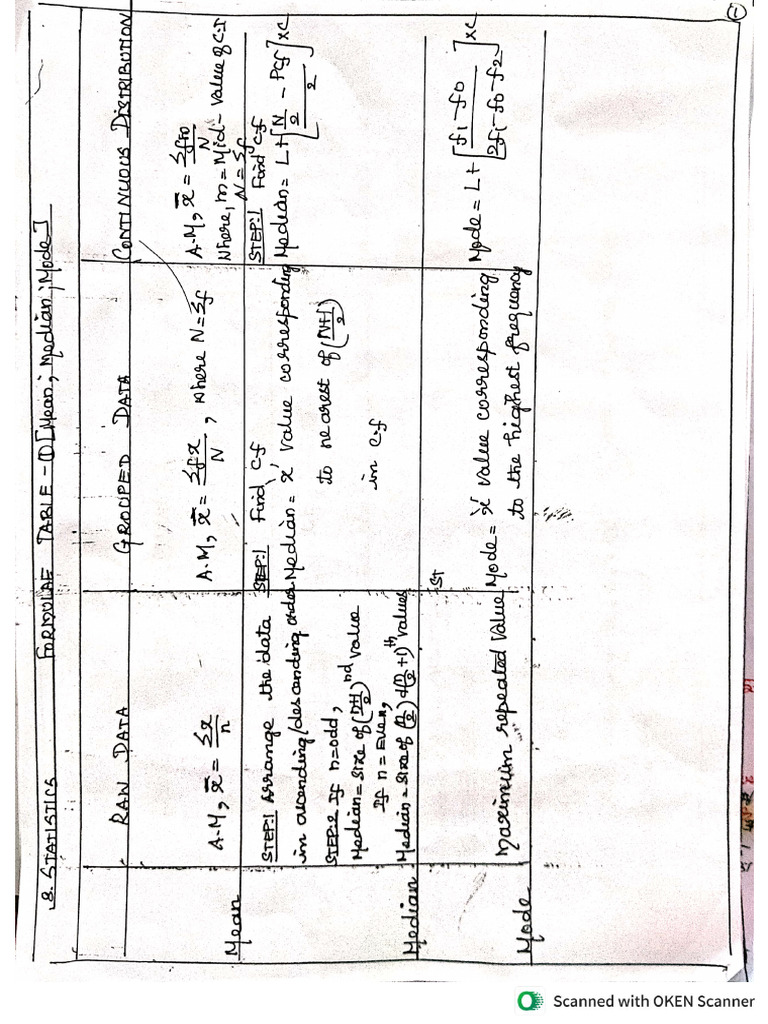 8. STATISTICS FORMULAE TABLE - ① [Mean; Median; Mode]
RAW DATA
GROUPED DATA
CONTINUOUS DISTRIBUTION
Mean
A.M, x̄ = Σx/n
A.M, x̄ = Σfx/N, where N = Σf
A.M, x̄ = Σfm/N
Where, m = Mid-Value of C-I
N = Σf
Median
STEP:1 Arrange the data
in ascending/descending order
STEP:2 If n=odd,
Median = Size of (n+1/2)nd value
If n = Even,
Median = Size of (n/2) + (n/2 + 1)th values
STEP:1 Find c.f
Median = 'x' value corresponding
to nearest of (N+1/2)
in c.f
STEP:1 Find c.f
Median = L + [N/2 - Pcf / 2] x c
Mode
Maximum repeated value
ST
Mode = 'x' value corresponding
to the highest frequency
Mode = L + [f1 - f0 / 2f1 - f0 - f2] x c
①
Scanned with OKEN Scanner